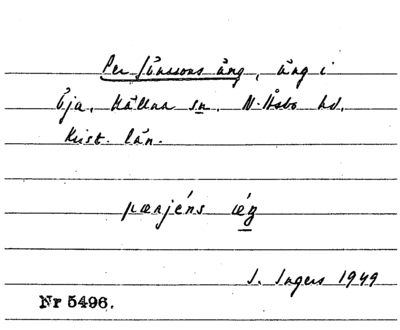 Per Jönssons äng, äng i
Öja, Källna sn. N. Åsbo hd.
Krist. län.
pærjéns ǽŋ
I. Ingers 1949
Nr 5496.